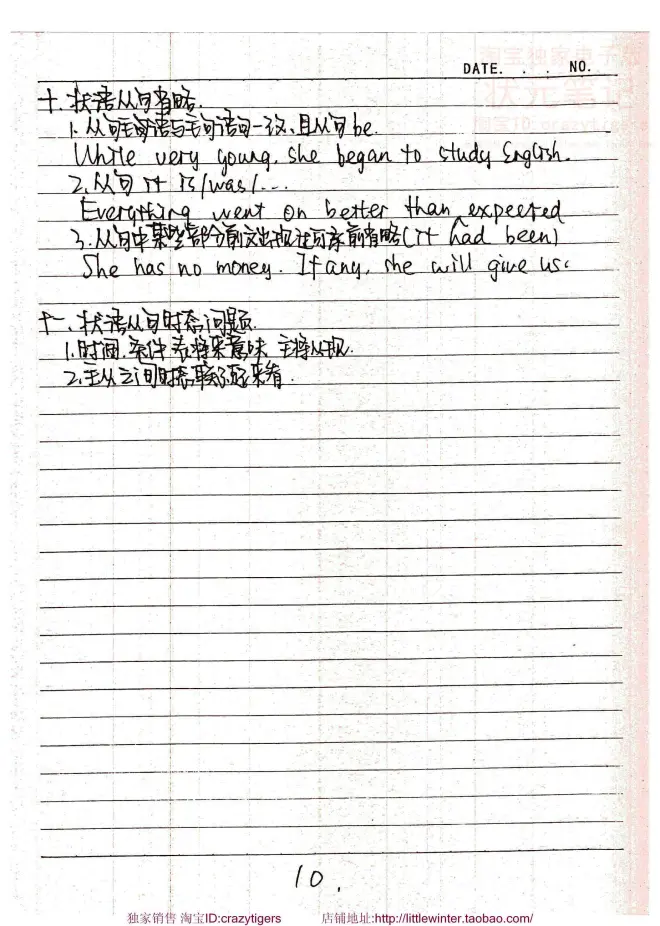 淘宝独家电子版
状元笔记
淘宝ID:crazytigers
DATE. . . NO.
十、状语从句省略.
1. 从句主句语与主句语句一致,且从句be.
While very young, she began to study English.
2. 从句 it is/was/...
Everything went on better than expected
3. 从句中某些部分前文出现过可承前省略(it had been)
She has no money. If any, she will give us.
十一、状语从句时态问题.
1. 时间、条件 表将来意味 主将从现.
2. 主从之间时态联系起来看.
10.
独家销售 淘宝ID:crazytigers 店铺地址:http://littlewinter.taobao.com/